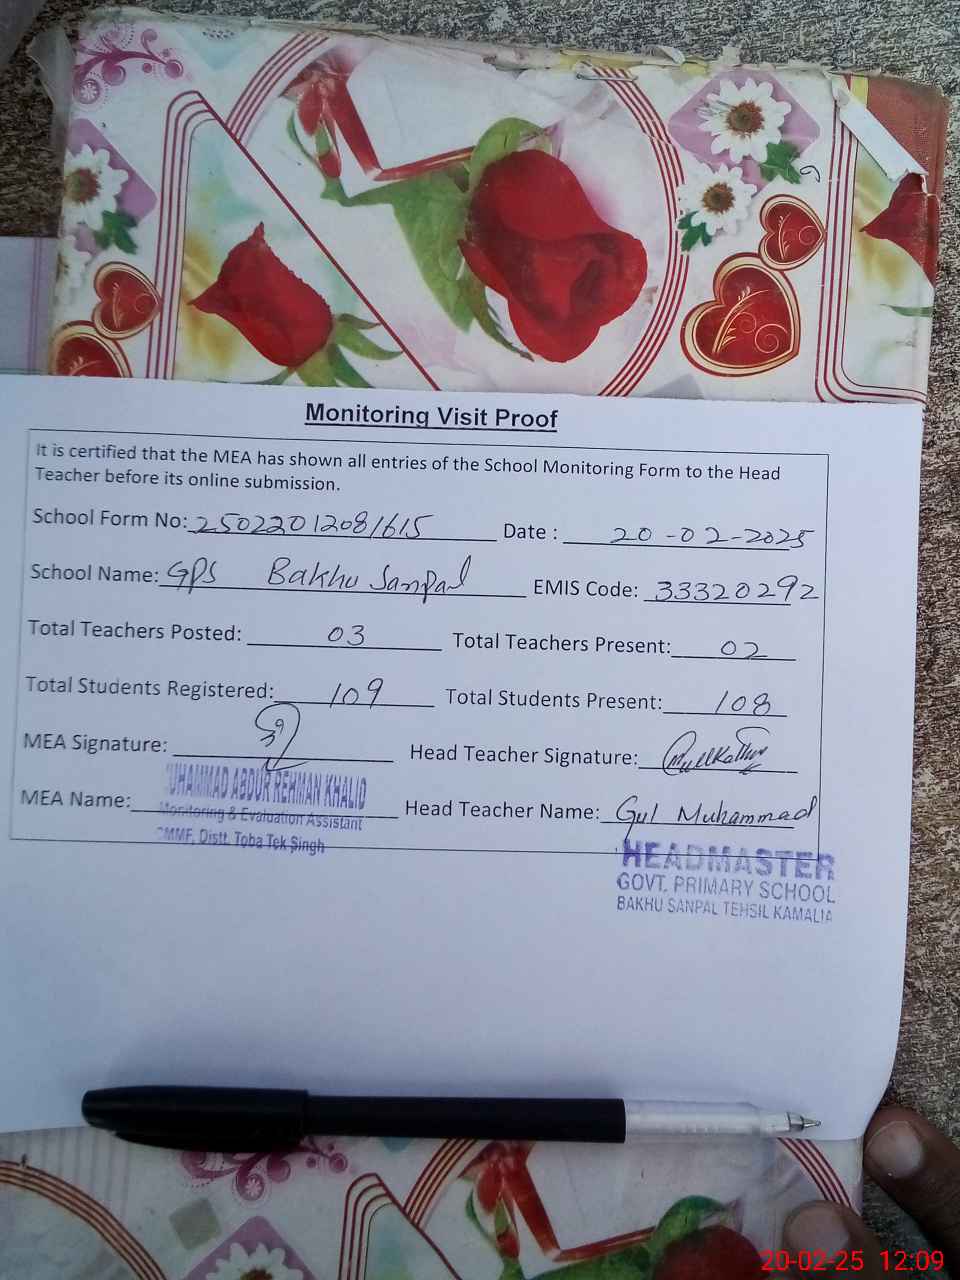 Monitoring Visit Proof
It is certified that the MEA has shown all entries of the School Monitoring Form to the Head
Teacher before its online submission.
School Form No: 25022012081615 Date : 20-02-2025
School Name: GPS Bakhu Sanpal EMIS Code: 33320292
Total Teachers Posted: 03 Total Teachers Present: 02
Total Students Registered: 109 Total Students Present: 108
MEA Signature: Head Teacher Signature:
MUHAMMAD ABDUR REHMAN KHALID
MEA Name: Head Teacher Name: Gul Muhammad
Monitoring & Evaluation Assistant
CMMF, Distt. Toba Tek Singh
HEADMASTER
GOVT. PRIMARY SCHOOL
BAKHU SANPAL TEHSIL KAMALIA
20-02-25 12:09